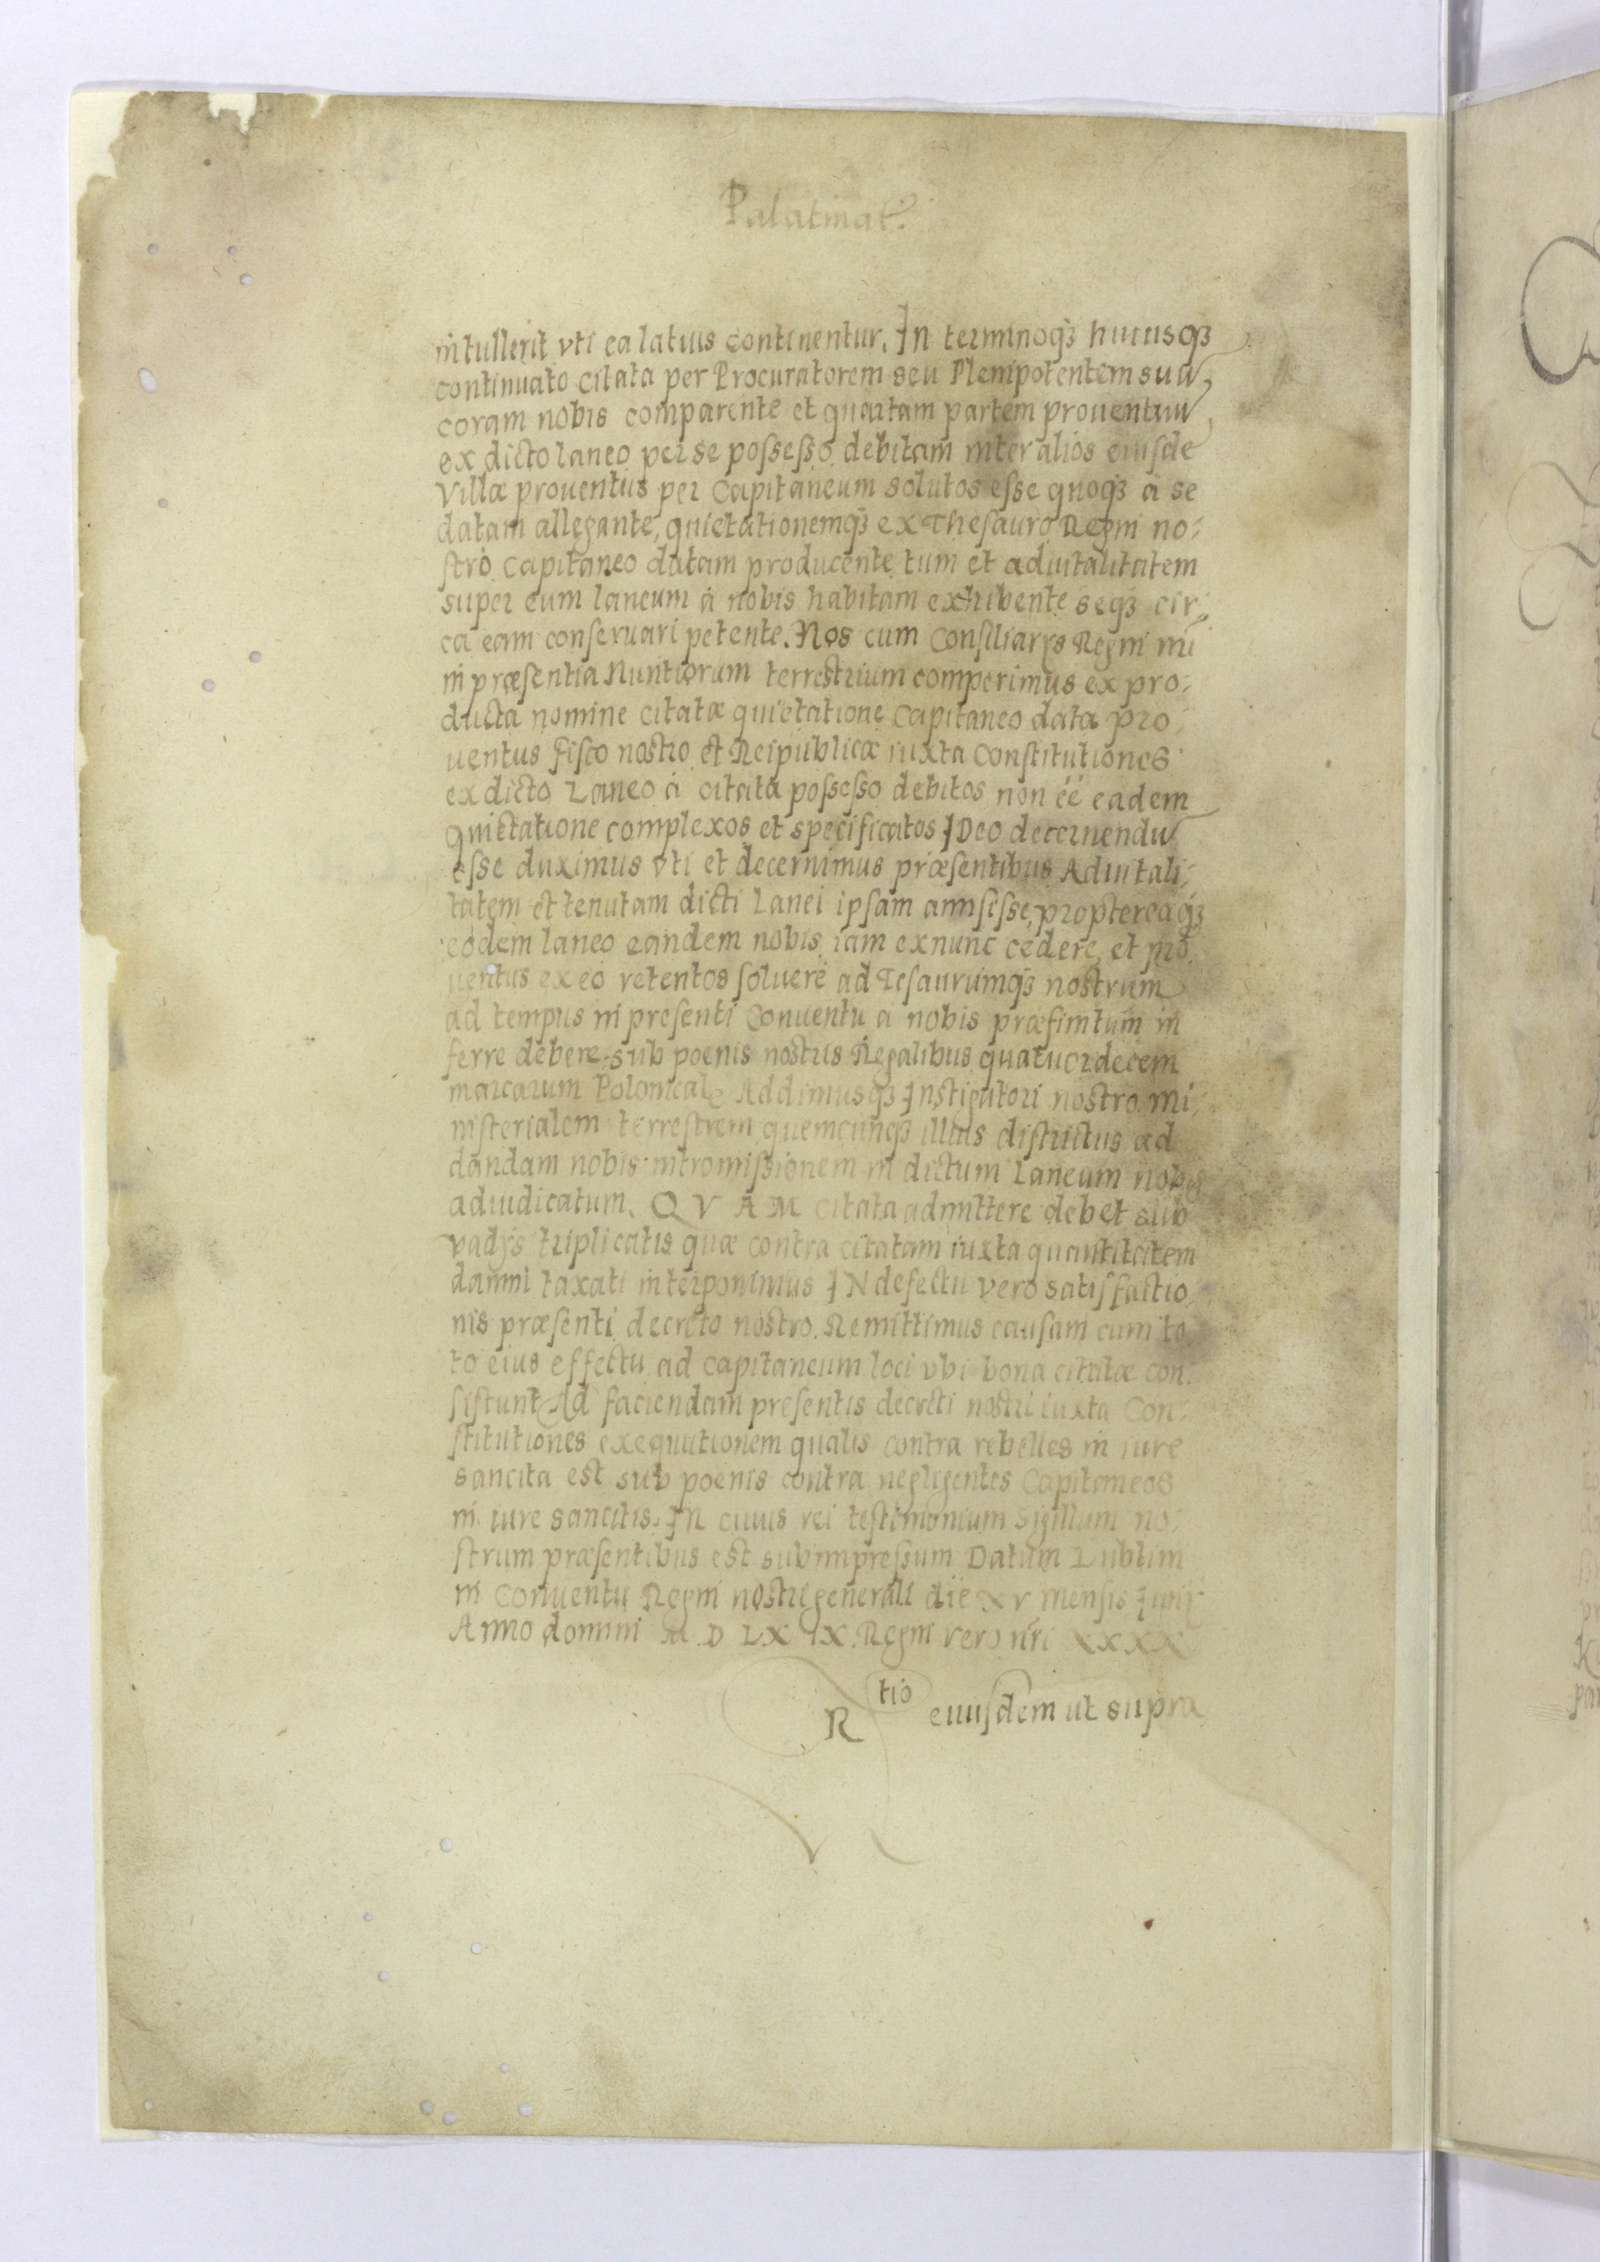 Palatinat
intullerit vti ea latius continentur. In terminoq3 huiusq3
continuato Citata per Procuratorem seu Plenipotentem suu
coram nobis comparente et quartam partem prouentuu
ex dicto laneo per se possesso debitam inter alios eiusde
Villæ prouentus per Capitaneum solutos esse quoq3 a se
datam allegante, quietationemq3 ex Thesauro Regni no:
stro Capitaneo datam producente tum et aduitalitatem
super eum laneum a nobis habitam exhibente seq3 cir:
ca eam conseruari petente. Nos cum Consiliarys Regni nri
in præsentia Nuntiorum terrestrium comperimus ex pro:
ducta nomine citatæ quietatione Capitaneo data pro:
uentus Fisco nostro et Reipublicæ iuxta Constitutiones
ex dicto Laneo a citata possesso debitos non éé eadem
quietatione complexos et specificatos IDeo decernendu
esse duximus vti et decernimus præsentibus Aduitali:
tatem et tenutam dicti Lanei ipsam amisisse, propterеaq3
eodem laneo eandem nobis iam exnunc cedere, et pro
uentus ex eo retentos soluere ad Tesaurumq3 nostrum
ad tempus in presenti Conuentu a nobis præfinitum in
ferre debere sub poenis nostris Regalibus quatuordecem
marcarum Polonical Addimusq3 Instigatori nostro mi:
nisterialem terrestrem quemcunq3 illius districtus ad
dandam nobis intromissionem in dictum Laneum nobis
adiudicatum. QVAM citata admittere debet sub
vadys triplicatis quæ contra citatam iuxta quantitatem
damni taxati interponimus IN defectu vero satisfactio
nis præsenti decreto nostro. Remittimus causam cum to
to eius effectu ad Capitaneum loci vbi bona citatæ con:
sistunt Ad faciendam presentis decreti nostri iuxta Con:
stitutiones exequutionem qualis contra rebelles in iure
sancita est sub poenis contra negligentes Capitaneos
in iure sancitis. IN cuius rei testimonium Sigillum no:
strum præsentibus est subimpressum Datum Lublini
in Conuentu Regni nostri generali die XV mensis Iunij
Anno domini M D LX IX. Regni vero nri XXXX
Rtio eiusdem ut supra